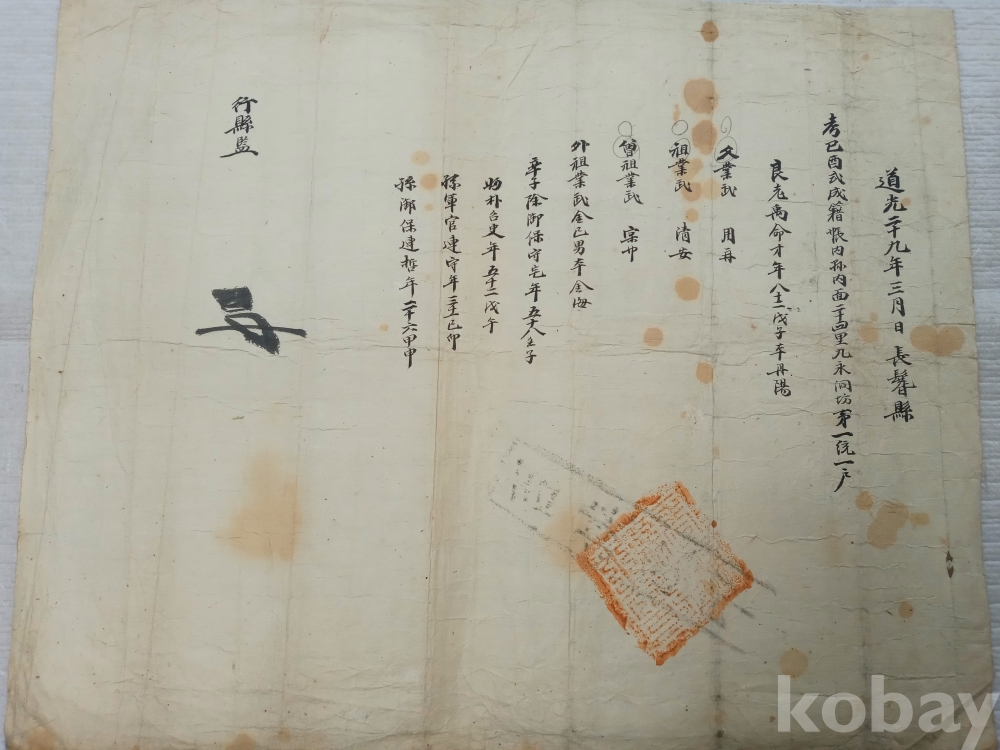 道光二十九年三月日 長鬐縣
考己酉式成籍帳內 內面二十四里九永同坊第一統一戶
良老禹命才年八十二戊子本丹陽
父業武 用再
祖業武 淸安
曾祖業武 宗
外祖業武金已男本金海
率子除御保守 年五十八壬子
婦朴召史年五十二戊午
孫軍官連守年三十一己卯
孫御保連哲年二十六甲申
行縣監
kobay